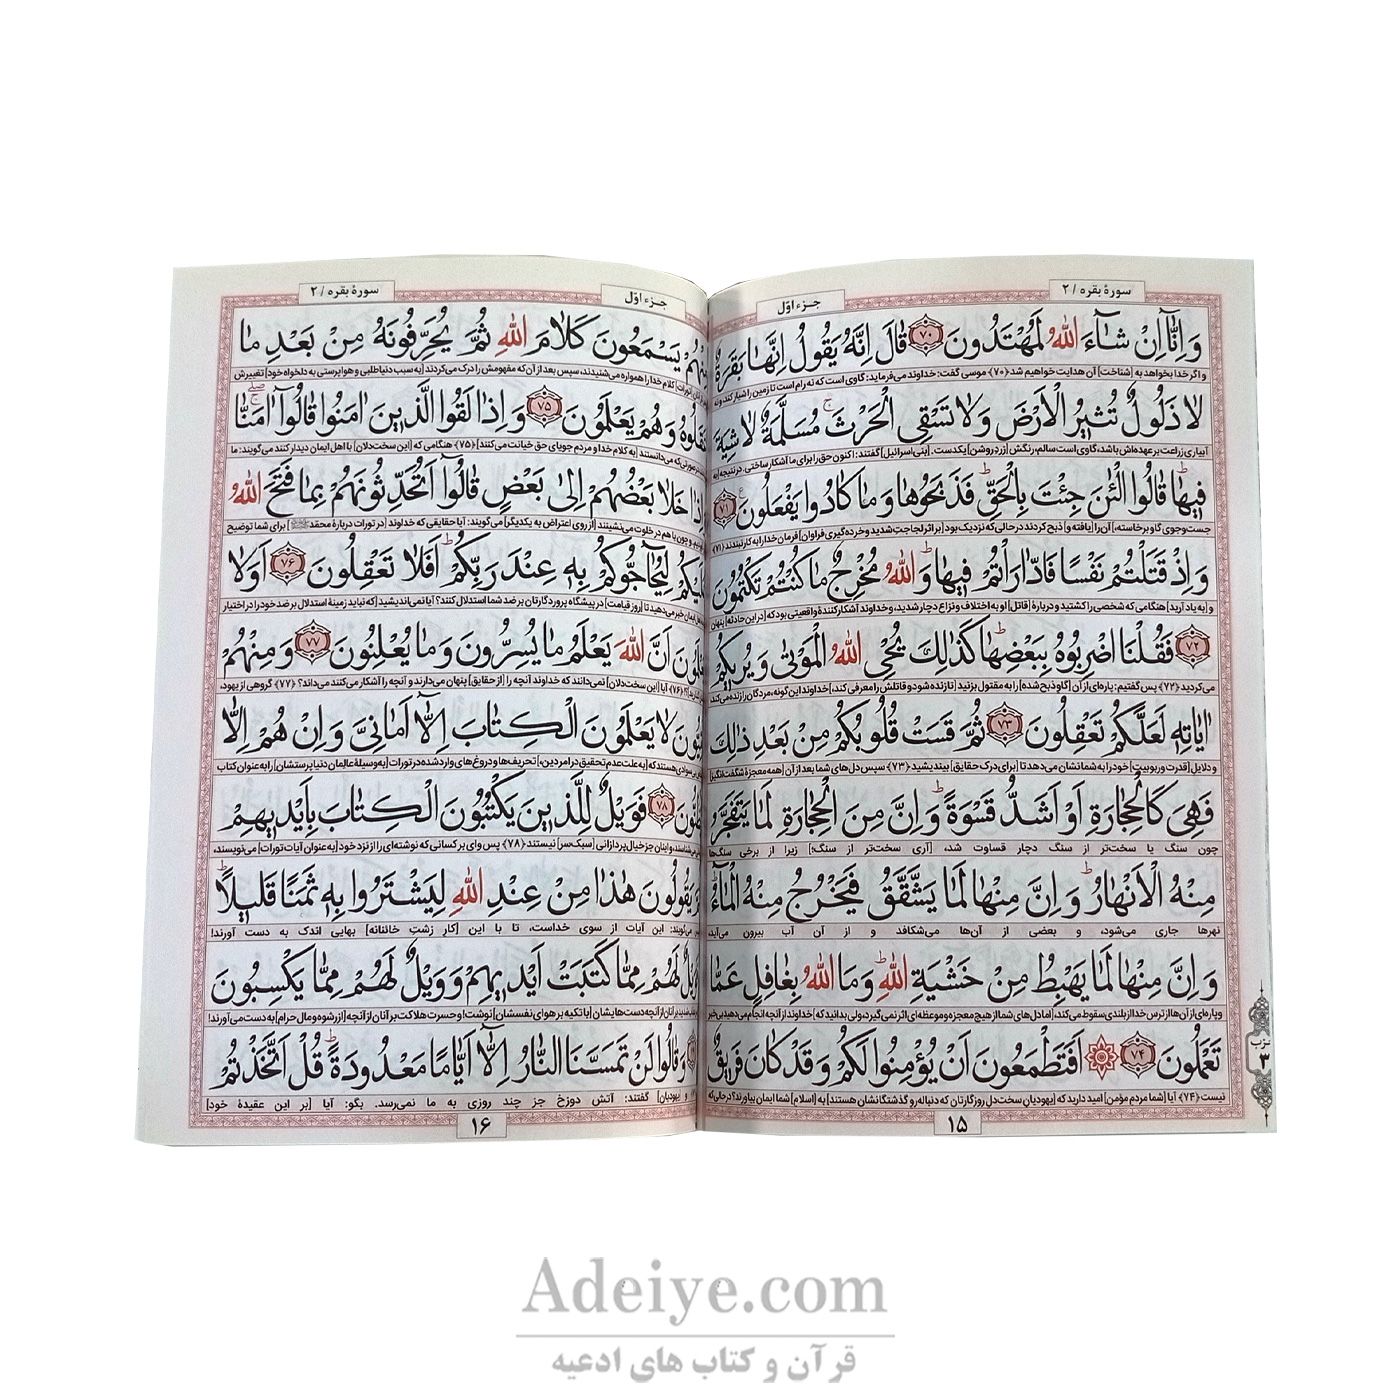 سورهٔ بقره / ۲
جزء اوّل
وَ اِنَّآ اِنْ شَآءَ اللّٰهُ لَمُهْتَدُونَ ﴿۷۰﴾ قَالَ اِنَّهُ يَقُولُ اِنَّهَا بَقَرَةٌ
و اگر خدا بخواهد به [شناخت] آن هدایت خواهیم شد ﴿۷۰﴾ موسی گفت: خداوند می‌فرماید: گاوی است که نه رام است تا زمین را شیار کند، و نه
لَا ذَلُولٌ تُثيرُ الْاَرْضَ وَ لَا تَسْقِى الْحَرْثَ مُسَلَّمَةٌ لَا شِيَةَ
آبیاری زراعت بر عهده‌اش باشد، گاوی است سالم، رنگش [زردِ روشنِ] یکدست. [بنی‌اسرائیل] گفتند: اکنون حق را برای ما آشکار ساختی. در نتیجه [به
فيهَا قَالُوا الْئٰنَ جِئْتَ بِالْحَقِّ فَذَبَحُوهَا وَ مَا كَادُوا يَفْعَلُونَ ﴿۷۱﴾
جست‌وجوی گاو برخاسته،] آن را [یافته و] ذبح کردند در حالی که نزدیک بود [بر اثر لجاجت شدید و خرده‌گیری فراوان] فرمان خدا را به کار نبندند ﴿۷۱﴾
وَ اِذْ قَتَلْتُمْ نَفْسًا فَادّٰارَاْتُمْ فيهَا وَ اللّٰهُ مُخْرِجٌ مَا كُنْتُمْ تَكْتُمُونَ
و [به یاد آرید] هنگامی که شخصی را کشتید و دربارهٔ [قاتلِ] او به اختلاف و نزاع دچار شدید، و خداوند آشکار کنندهٔ واقعیتی بود که [در این حادثه] پنهان
﴿۷۲﴾ فَقُلْنَا اضْرِبُوهُ بِبَعْضِهَا كَذٰلِكَ يُحْىِ اللّٰهُ الْمَوْتٰى وَ يُريكُمْ
می‌کردید ﴿۷۲﴾ پس گفتیم: پاره‌ای از آن [گاو ذبح شده] را به مقتول بزنید [تا زنده شود و قاتلش را معرفی کند،] خداوند این گونه، مردگان را زنده می‌کند
اٰيَاتِه لَعَلَّكُمْ تَعْقِلُونَ ﴿۷۳﴾ ثُمَّ قَسَتْ قُلُوبُكُمْ مِنْ بَعْدِ ذٰلِكَ
و دلایلِ [قدرت و ربوبیت] خود را به شما نشان می‌دهد تا [برای درک حقایق] بیندیشید ﴿۷۳﴾ سپس دل‌های شما بعد از آن [همه معجزهٔ شگفت‌انگیز]
فَهِىَ كَالْحِجَارَةِ اَوْ اَشَدُّ قَسْوَةً وَ اِنَّ مِنَ الْحِجَارَةِ لَمَا يَتَفَجَّرُ
چون سنگ یا سخت‌تر از سنگ دچار قساوت شد، [آری سخت‌تر از سنگ؛] زیرا از برخی سنگ‌ها
مِنْهُ الْاَنْهَارُ وَ اِنَّ مِنْهَا لَمَا يَشَّقَّقُ فَيَخْرُجُ مِنْهُ الْمَآءُ
نهرها جاری می‌شود، و بعضی از آن‌ها می‌شکافد و از آن آب بیرون می‌آید،
وَ اِنَّ مِنْهَا لَمَا يَهْبِطُ مِنْ خَشْيَةِ اللّٰهِ وَ مَا اللّٰهُ بِغَافِلٍ عَمَّا
و پاره‌ای از آن‌ها از ترس خدا از بلندی سقوط می‌کند، [اما دل‌های شما از هیچ معجزه و موعظه‌ای اثر نمی‌گیرد، ولی بدانید که] خداوند از آنچه انجام می‌دهید بی‌خبر
تَعْمَلُونَ ﴿۷۴﴾ اَفَتَطْمَعُونَ اَنْ يُؤْمِنُوا لَكُمْ وَ قَدْ كَانَ فَريقٌ
نیست ﴿۷۴﴾ آیا [شما مردم مؤمن] امید دارید که [یهودیانِ سخت‌دلِ روزگارتان که دنباله‌رو گذشتگانشان هستند] به [اسلامِ] شما ایمان بیاورند؟ در حالی که
حزب
۳
۱۵
جزء اوّل
سورهٔ بقره / ۲
يَسْمَعُونَ كَلَامَ اللّٰهِ ثُمَّ يُحَرِّفُونَهُ مِنْ بَعْدِ مَا
کلام خدا را همواره می‌شنیدند، سپس بعد از آن که مفهومش را درک می‌کردند [به سبب دنیاطلبی و هواپرستی به دلخواه خود] تغییرش
وَ هُمْ يَعْلَمُونَ ﴿۷۵﴾ وَ اِذَا لَقُوا الَّذينَ اٰمَنُوا قَالُوآ اٰمَنَّا
که می‌دانستند [به کلام خدا و مردمِ جویای حق خیانت می‌کنند] ﴿۷۵﴾ هنگامی که [این سخت‌دلان] با اهل ایمان دیدار کنند می‌گویند: ما
خَلَا بَعْضُهُمْ اِلٰى بَعْضٍ قَالُوآ اَتُحَدِّثُونَهُمْ بِمَا فَتَحَ اللّٰهُ
و چون با هم در خلوت می‌نشینند [از روی اعتراض به یکدیگر] می‌گویند: آیا حقایقی که خداوند [در تورات دربارهٔ محمد] برای شما توضیح
لِيُحَآجُّوكُمْ بِه عِنْدَ رَبِّكُمْ اَفَلَا تَعْقِلُونَ ﴿۷۶﴾ اَوَلَا
خبر می‌دهید تا [روز قیامت] در پیشگاه پروردگارتان بر ضد شما استدلال کنند؟ آیا نمی‌اندیشید [که نباید زمینهٔ استدلال بر ضد خود را در اختیار
اَنَّ اللّٰهَ يَعْلَمُ مَا يُسِرُّونَ وَ مَا يُعْلِنُونَ ﴿۷۷﴾ وَ مِنْهُمْ
﴿۷۶﴾ آیا [این سخت‌دلان] نمی‌دانند که خداوند آنچه را [از حقایق] پنهان می‌دارند و آنچه را آشکار می‌کنند می‌داند؟ ﴿۷۷﴾ گروهی از یهود،
لَا يَعْلَمُونَ الْكِتَابَ اِلَّآ اَمَانِىَّ وَ اِنْ هُمْ اِلَّا
بی‌سوادی هستند که [به علت عدم تحقیق در امر دین،] تحریف‌ها و دروغ‌های وارد شده در تورات [به وسیلهٔ عالمانِ دنیاپرستشان] را به عنوان کتاب
﴿۷۸﴾ فَوَيْلٌ لِلَّذينَ يَكْتُبُونَ الْكِتَابَ بِاَيْديهِمْ
و اینان جز خیال‌پردازانی [سبک‌سر] نیستند ﴿۷۸﴾ پس وای بر کسانی که نوشته‌ای را از نزد خود [به عنوان آیات تورات] می‌نویسند،
يَقُولُونَ هٰذَا مِنْ عِنْدِ اللّٰهِ لِيَشْتَرُوا بِه ثَمَنًا قَليلًا
می‌گویند: این آیات از سوی خداست، تا با این [کار زشتِ خائنانه] بهایی اندک به دست آورند!
لَهُمْ مِمَّا كَتَبَتْ اَيْديهِمْ وَ وَيْلٌ لَهُمْ مِمَّا يَكْسِبُونَ
بر آنان از آنچه دست‌هایشان [با تکیه بر هوای نفسشان] نوشت! و حسرت هلاکت بر آنان از آنچه [از رشوه و مال حرام] به دست می‌آورند!
وَ قَالُوا لَنْ تَمَسَّنَا النَّارُ اِلَّآ اَيَّامًا مَعْدُودَةً قُلْ اَتَّخَذْتُمْ
یهودیان] گفتند: آتش دوزخ جز چند روزی به ما نمی‌رسد. بگو: آیا [بر این عقیدهٔ خود]
۱۶
Adeiye.com
قرآن و کتاب های ادعیه